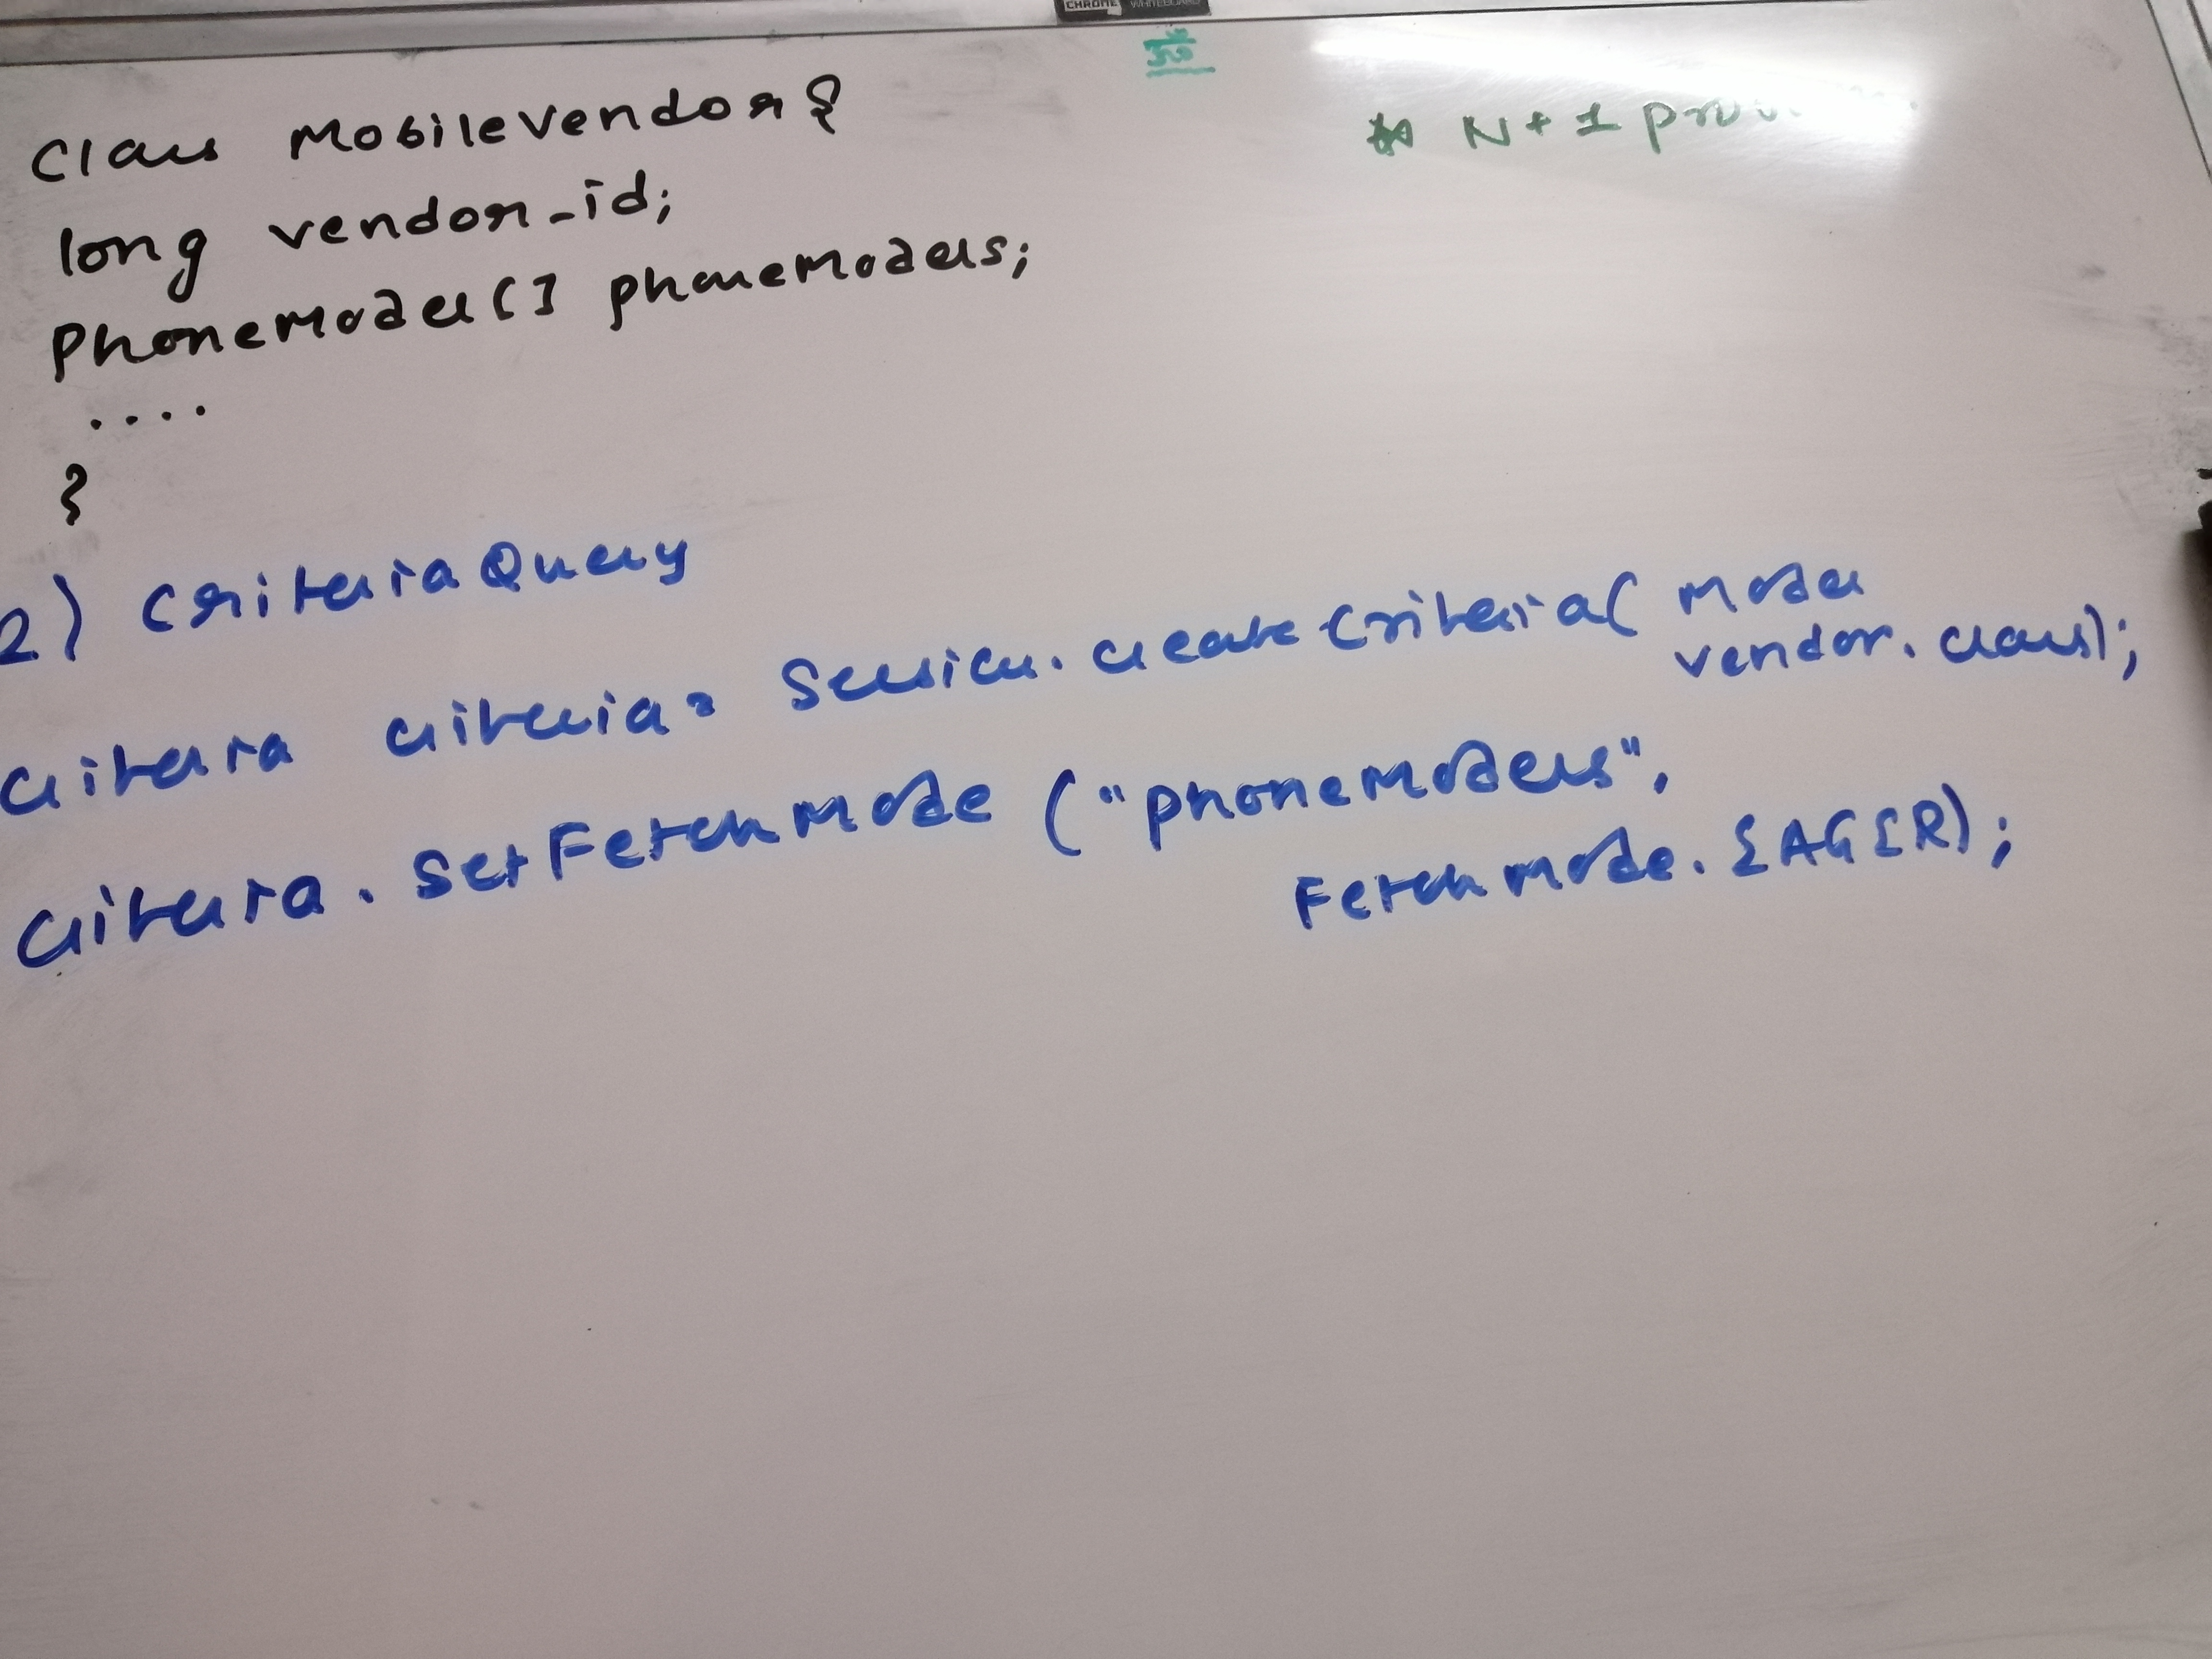 CHROME WHITEBOARD
ॐ
* N+1
Class MobileVendor {
long vendor_id;
PhoneModel[] phoneModels;
....
}
2) Criteria Query
Criteria criteria = session.createCriteria( Model
vendor.class);
criteria.SetFetchMode ("phoneModels",
Fetchmode.EAGER);